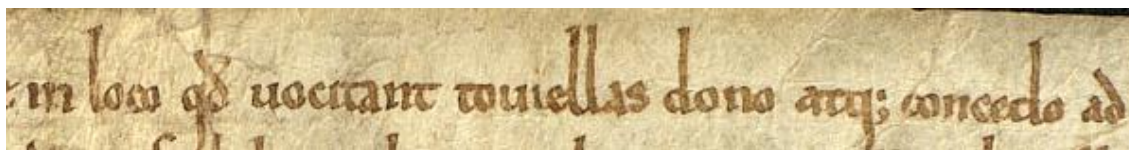 in loco qđ uocitant touiellas dono atq; concedo ad